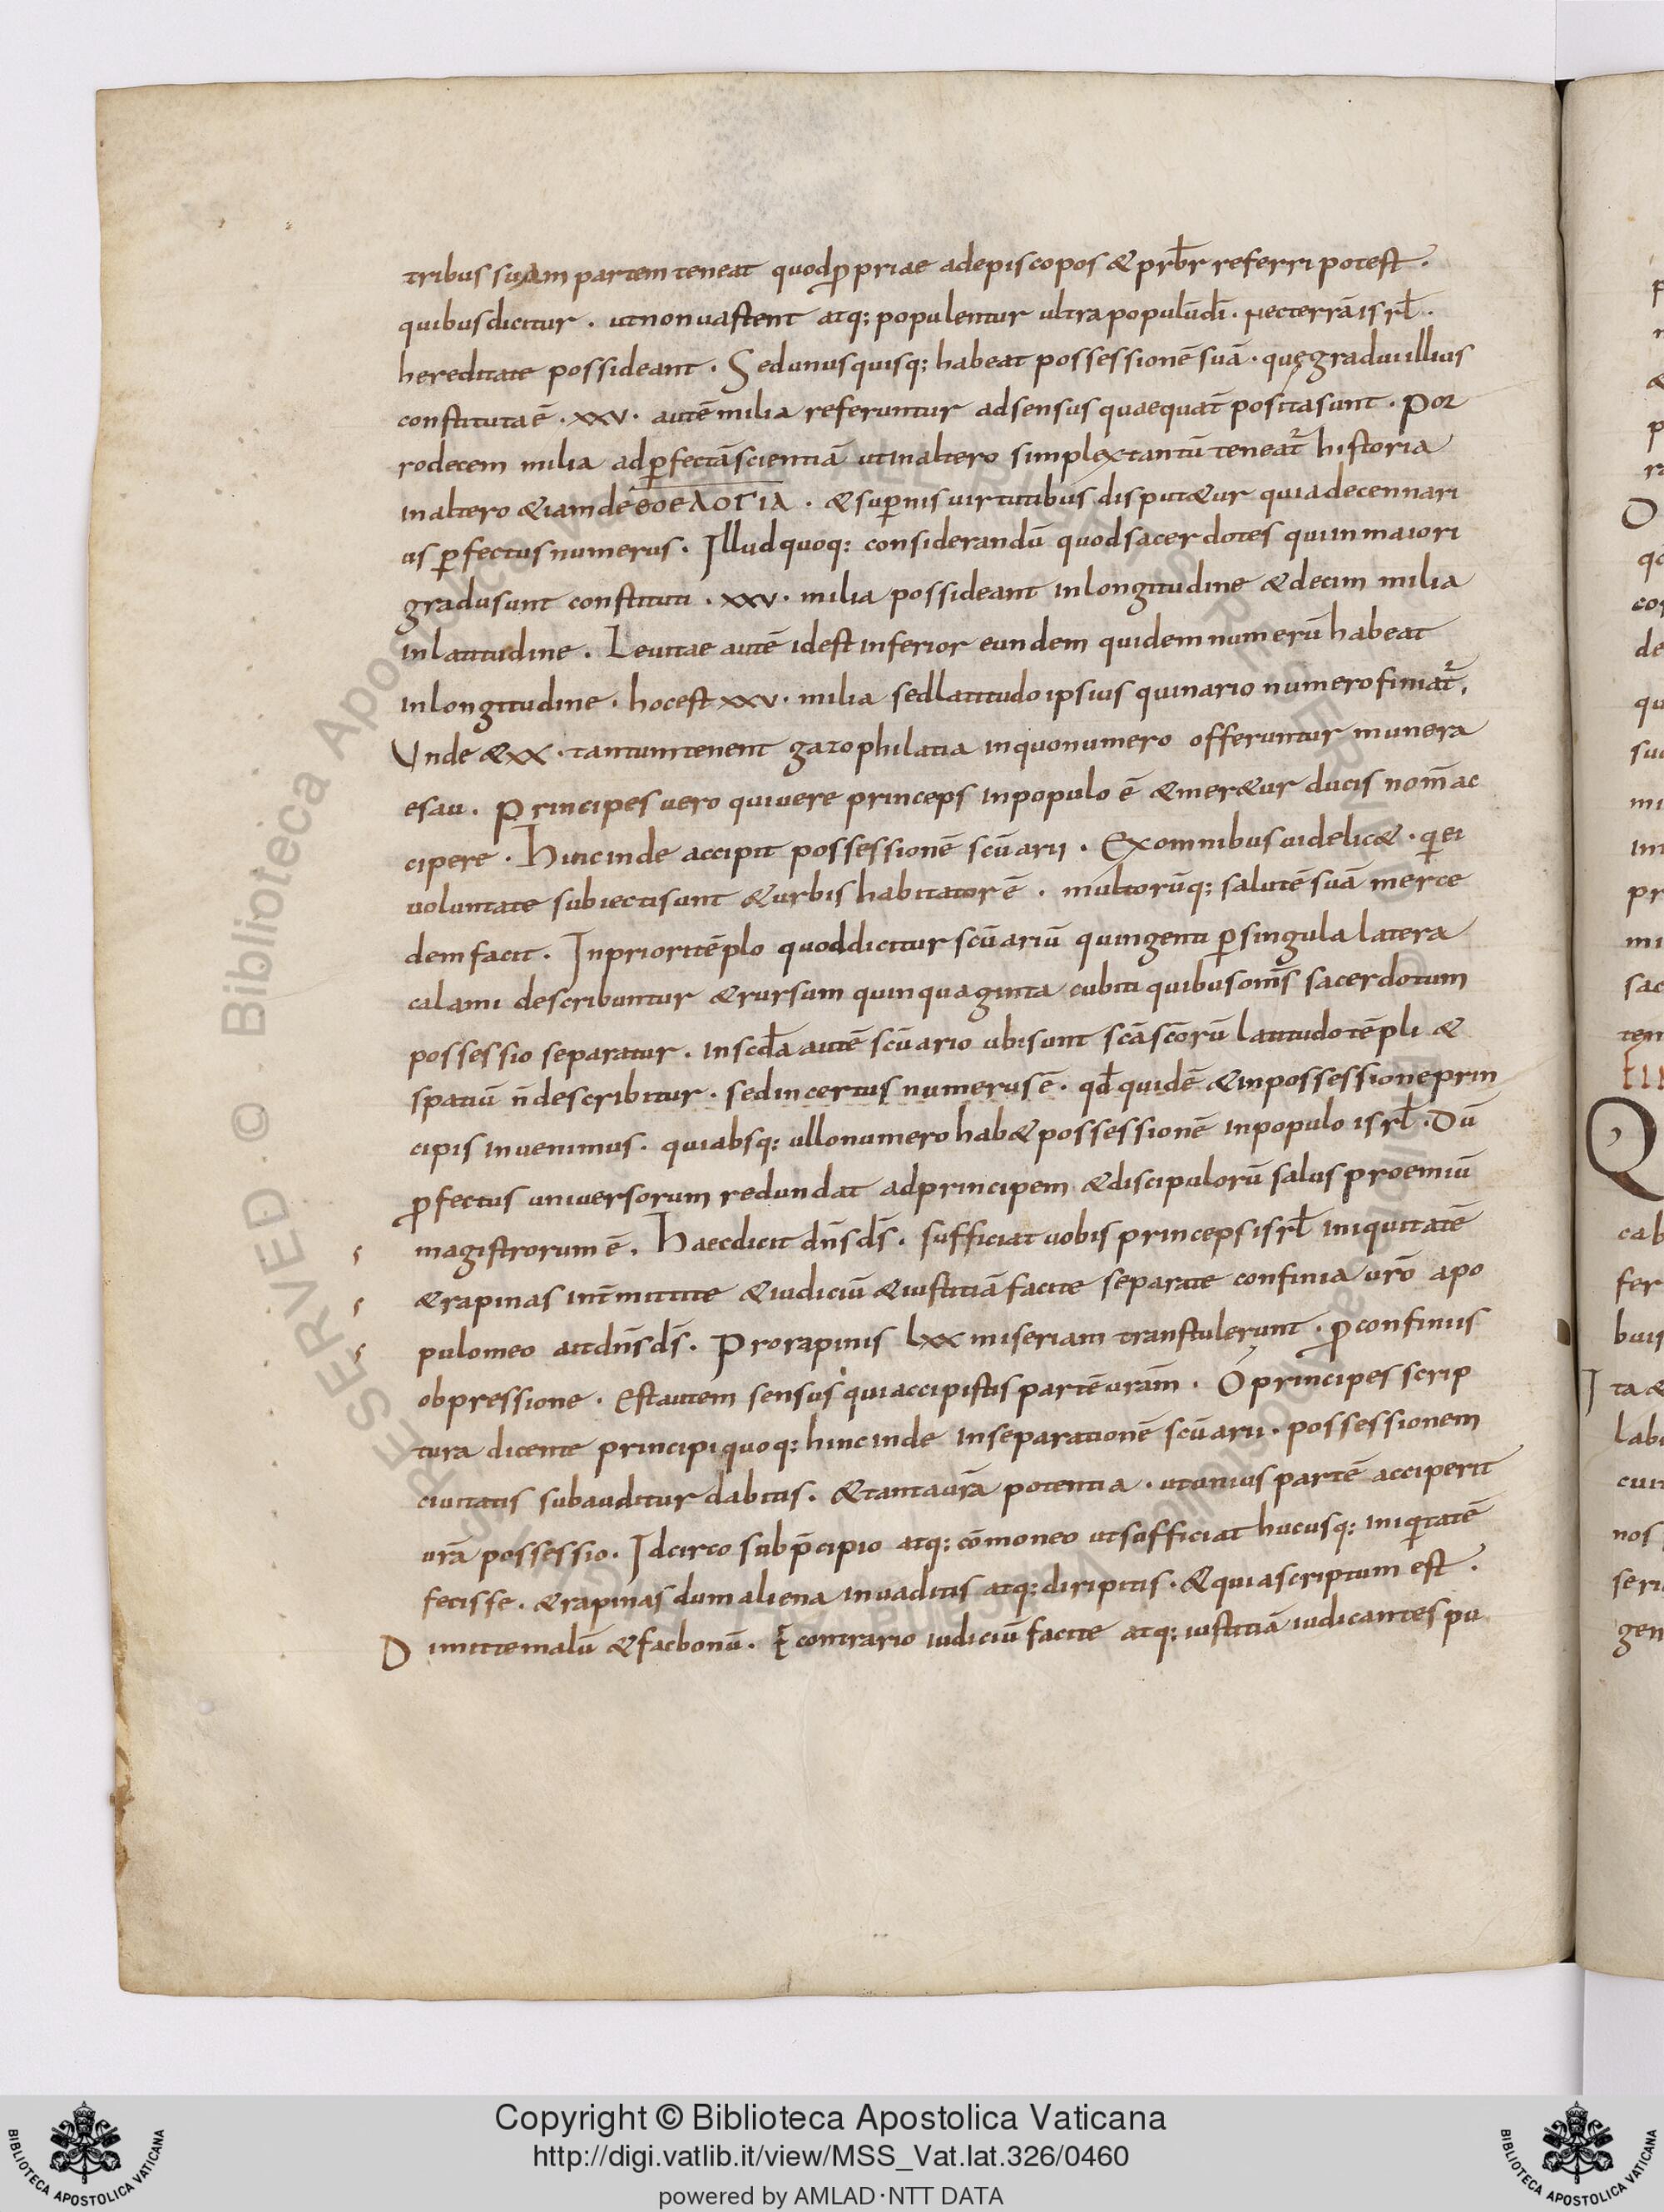 tribus suam partem teneat quod ꝓpriae ad episcopos & prb̄r referri potest.
quibus dicitur. ut non uastent atq; populentur ultra populū dī. nec terrā isrl̄.
hereditate possideant. Sed unusquisq; habeat possessionē suā. quę gradui illius
constituta ē. xxv. autē milia referuntur ad sensus quae quat̄ posita sunt. Por
ro decem milia ad ꝑfectā scientiā ut in altero simplex tantū teneat᷑ historia
in altero &iam de θοελογια. & suꝑnis uirtutibus disput&ur quia decennari
us ꝑfectus numerus. Illud quoq; considerandū quod sacerdotes qui in maiori
gradu sunt constituti. xxv. milia possideant in longitudine & decim milia
in latitudine. Leuitae autē id est inferior eundem quidem numerū habeat
in longitudine. hoc est xxv. milia sed latitudo ipsius quinario numero finiat᷑.
Unde & xx. tantum tenent gazophilatia in quo numero offeruntur munera
esau. Principes uero qui uere princeps in populo ē & mer&ur ducis nom̄ ac
cipere. Hinc inde accipit possessionē scūarii. Ex omnibus uidelic&. qͥ ei
voluntate subiecti sunt & urbis habitator ē. multorūq; salutē suā merce
dem facit. In priori tēplo quod dicitur scūariū quingenti ꝑ singula latera
calami describuntur & rursum quinquaginta cubiti quibus om̄s sacerdotum
possessio separatur. in scd̄a autē scūario ubi sunt scā scōrū latitudo tēpli &
spatiū n̄ describitur. sed incertus numerus ē. qd̄ quidē & in possessione prin
cipis inuenimus. qui absq; ullo numero hab& possessionē in populo isrl̄. Dū
ꝓfectus universorum redundat ad principem & discipulorū salus proemiū
magistrorum ē. Haec dicit dn̄s ds̄. sufficiat uobis princeps isrl̄ iniquitatē
& rapinas int̄mittite & iudiciū & iustitiā facite separate confinia ur̄o a po
pulo meo ait dn̄s ds̄. Pro rapinis lxx miseriam transtulerunt. ꝓ confinus
obpressione. Est autem sensus qui accipistis partē uram̄. O principes scrip
tura dicente principi quoq; hinc inde in separationē scūarii. possessionem
ciuitatis subauditur dabitis. & tanta ur̄a potentia. ut unius partē acciperit
ur̄a possessio. Idcirco sub p̄cipio atq; cōmoneo ut sufficiat hucusq; iniqͥtatē
fecisse. & rapinas dum aliena inuaditis atq; diripitis. & quia scriptum est.
Dimitte malū & fac bonū. E contrario iudiciū facite atq; iustitiā iudicantes pu
Copyright © Biblioteca Apostolica Vaticana
http://digi.vatlib.it/view/MSS_Vat.lat.326/0460
powered by AMLAD·NTT DATA